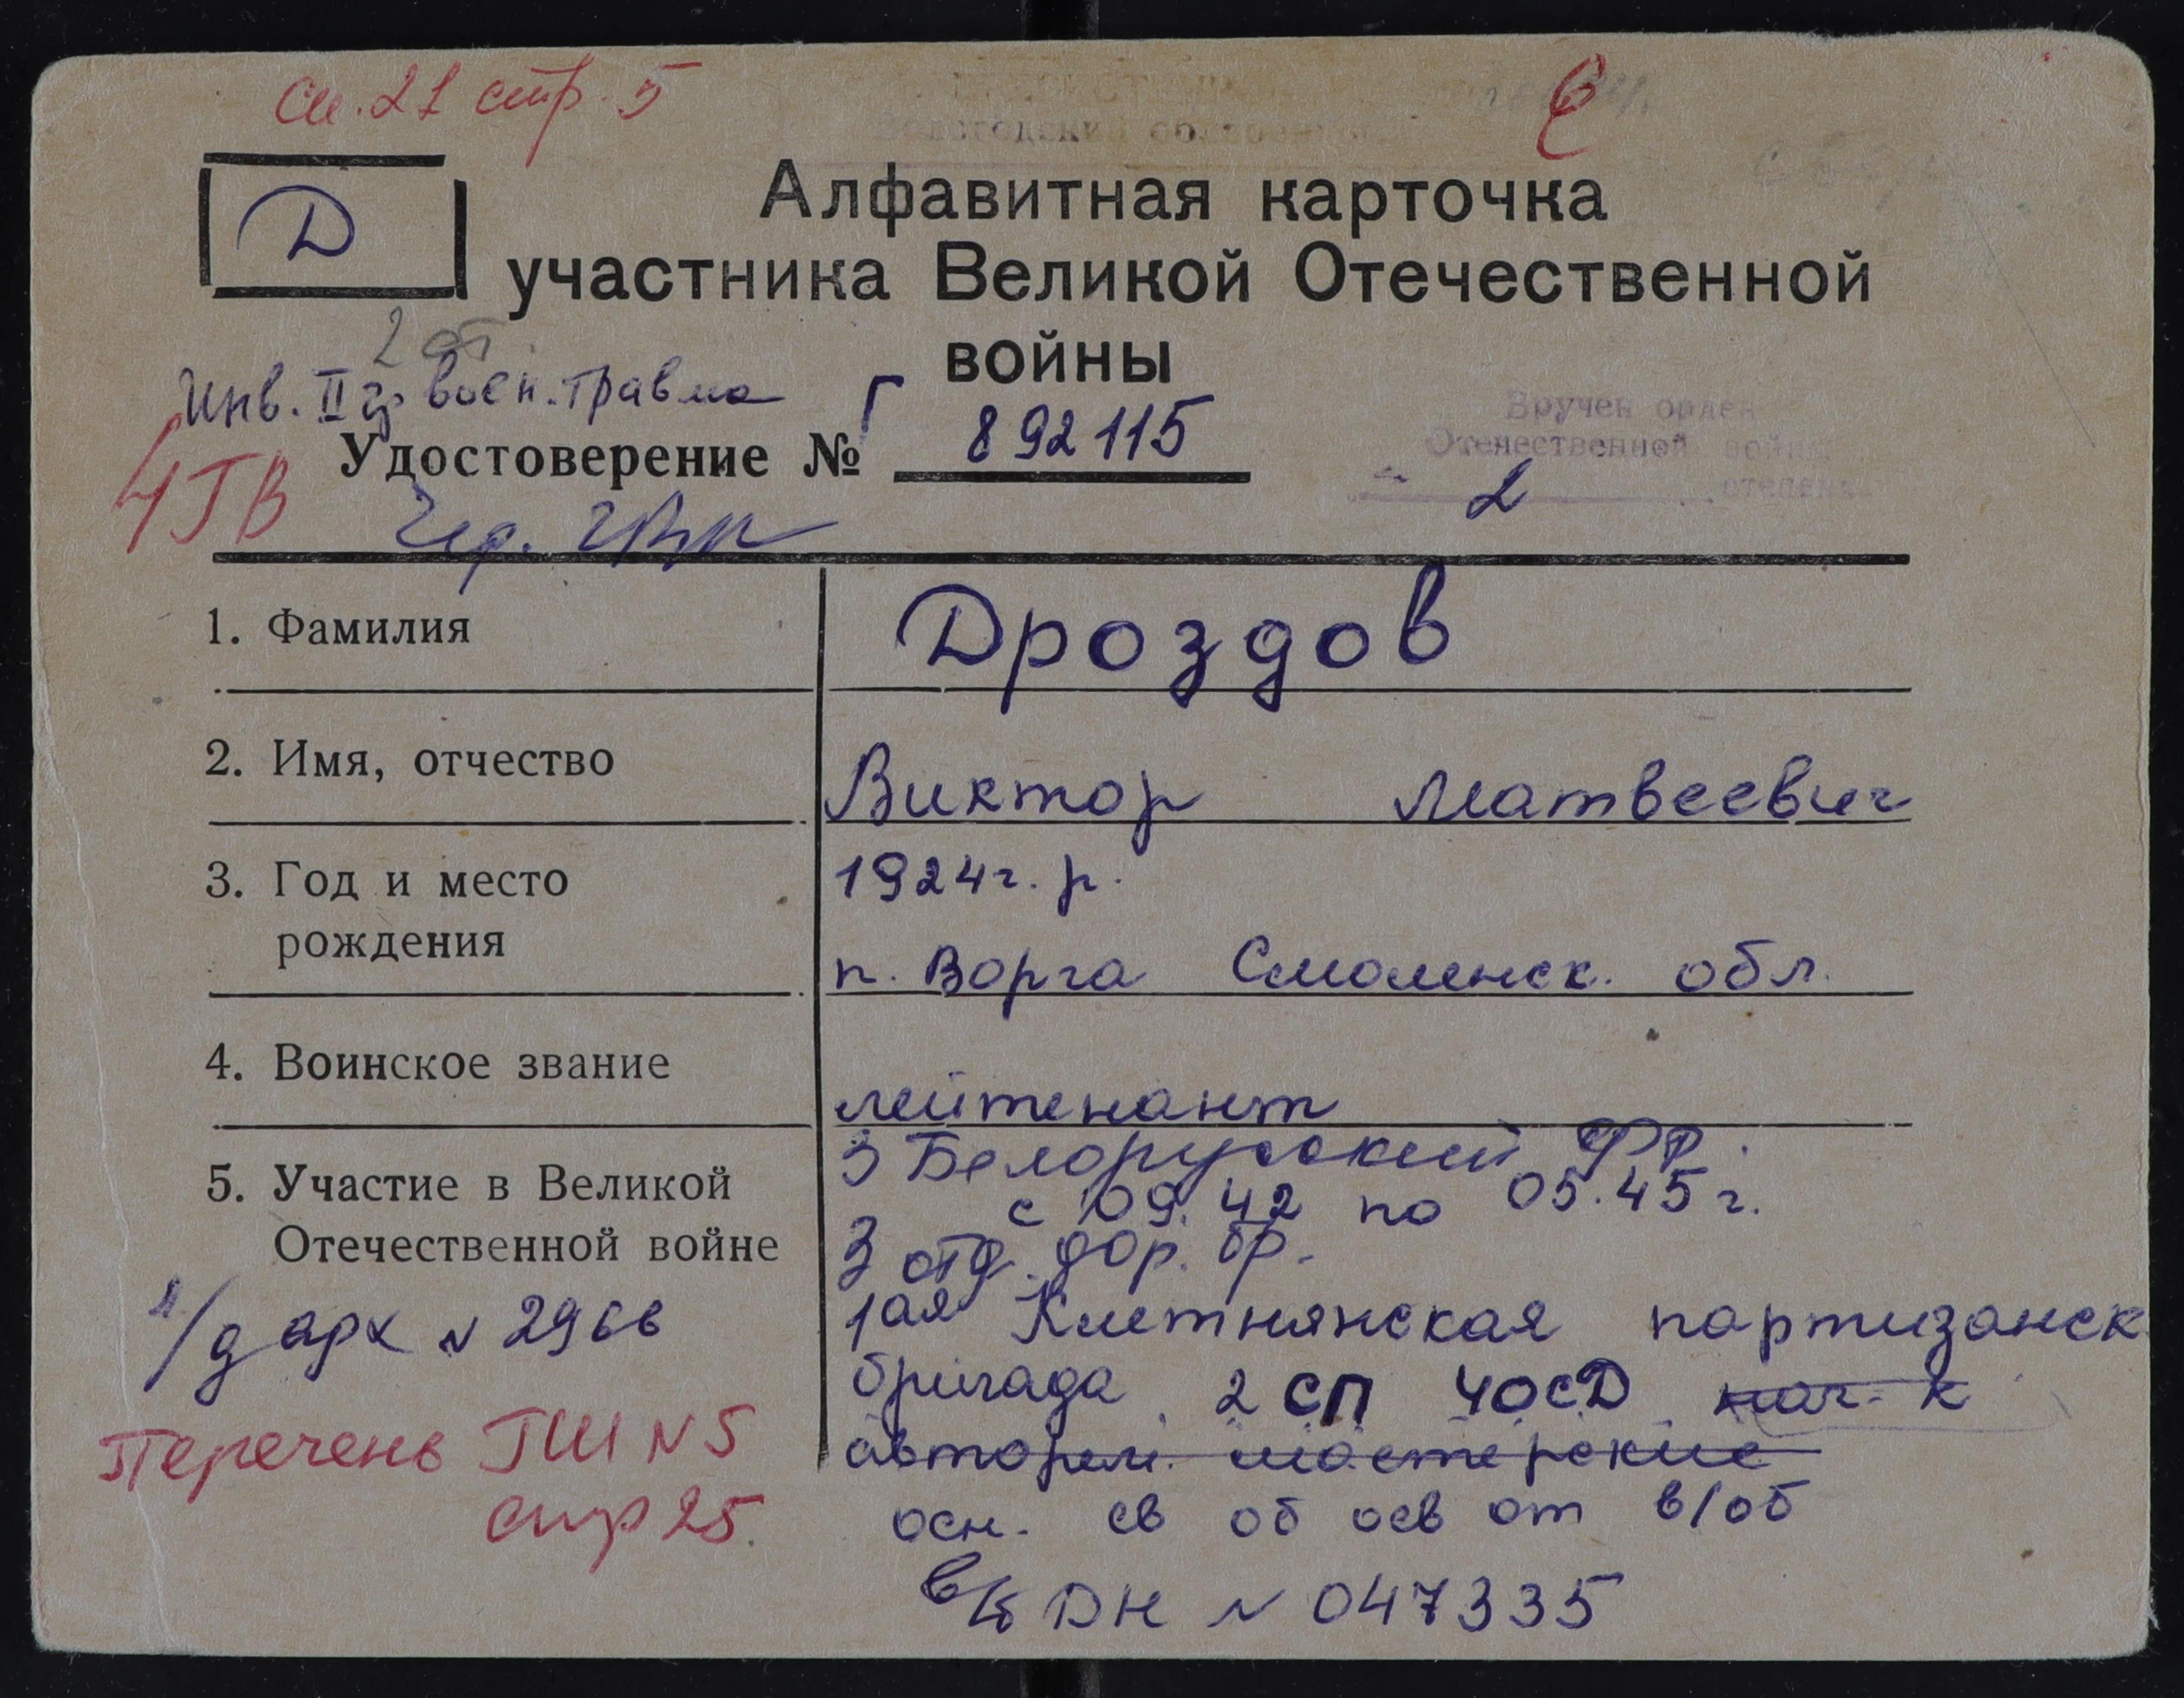 см. 21 стр. 5
Д
Алфавитная карточка
участника Великой Отечественной
войны
Инв. II гр. воен. травма
Удостоверение № Г 892115
Вручен орден
Отечественной войны
2 степени
ЧГВ
1. Фамилия Дроздов
2. Имя, отчество Виктор Матвеевич
3. Год и место 1924 г. р.
рождения п. Ворга Смоленск. обл.
4. Воинское звание лейтенант
5. Участие в Великой 3 Белорусский Фр.
Отечественной войне с 09. 42 по 05.45 г.
3 отд. дор. бр.
1ая Клетнянская партизанск
бригада 2 СП 4ОСД нач. к
авторем. мастерские
л/д арх N 2966
Перечень ГШ N 5
стр 25.
осн. св об осв от в/об
в/б ДН N 047335